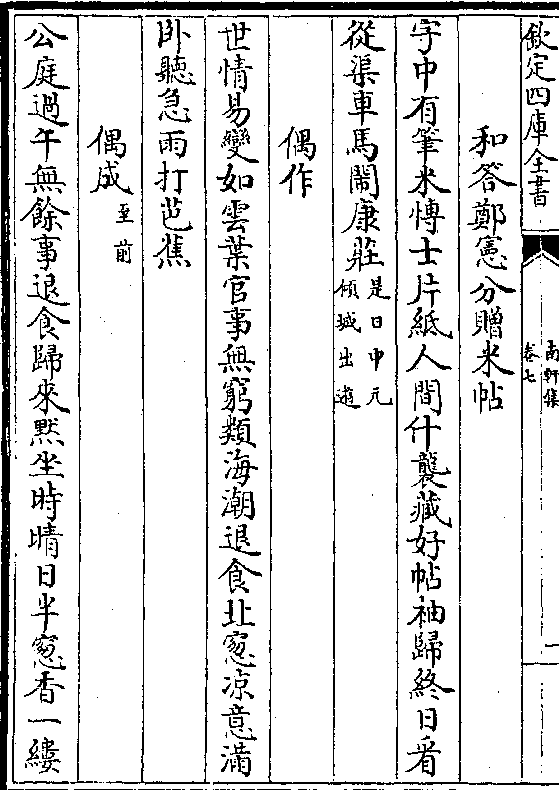 欽定四庫全書
南軒集
卷七
一
和答鄭憲分贈米帖
字中有筆米愽士片紙人間什襲藏好帖袖歸終日看
從渠車馬閙康莊是日中元傾城出遊
偶作
世情易變如雲葉官事無窮類海潮退食北窻凉意滿
卧聽急雨打芭蕉
偶成至前
公庭過午無餘事退食歸來黙坐時晴日半窻香一縷